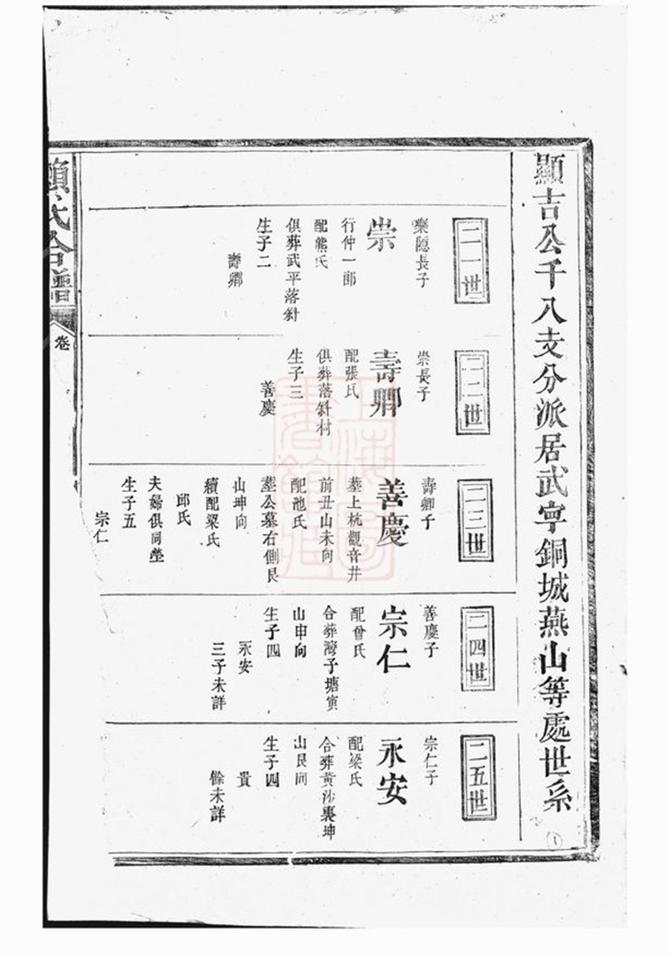 顯吉公千八支分派居武寧銅城燕山等處世系
二一世
樂隱長子
崇
行仲一郎
配熊氏
俱葬武平落斜
生子二
壽卿
二二世
崇長子
壽卿
配張氏
俱葬落斜村
生子三
善慶
二三世
壽卿子
善慶
墓上杭觀音井
前丑山未向
配池氏
墓公墓右側艮
山坤向
續配梁氏
邱氏
夫婦俱同塋
生子五
宗仁
二四世
善慶子
宗仁
配曾氏
合葬灣子塘寅
山申向
生子四
永安
三子未詳
二五世
宗仁子
永安
配梁氏
合葬黃沙裏坤
山艮向
生子四
貴
餘未詳
賴氏公譜
卷
1